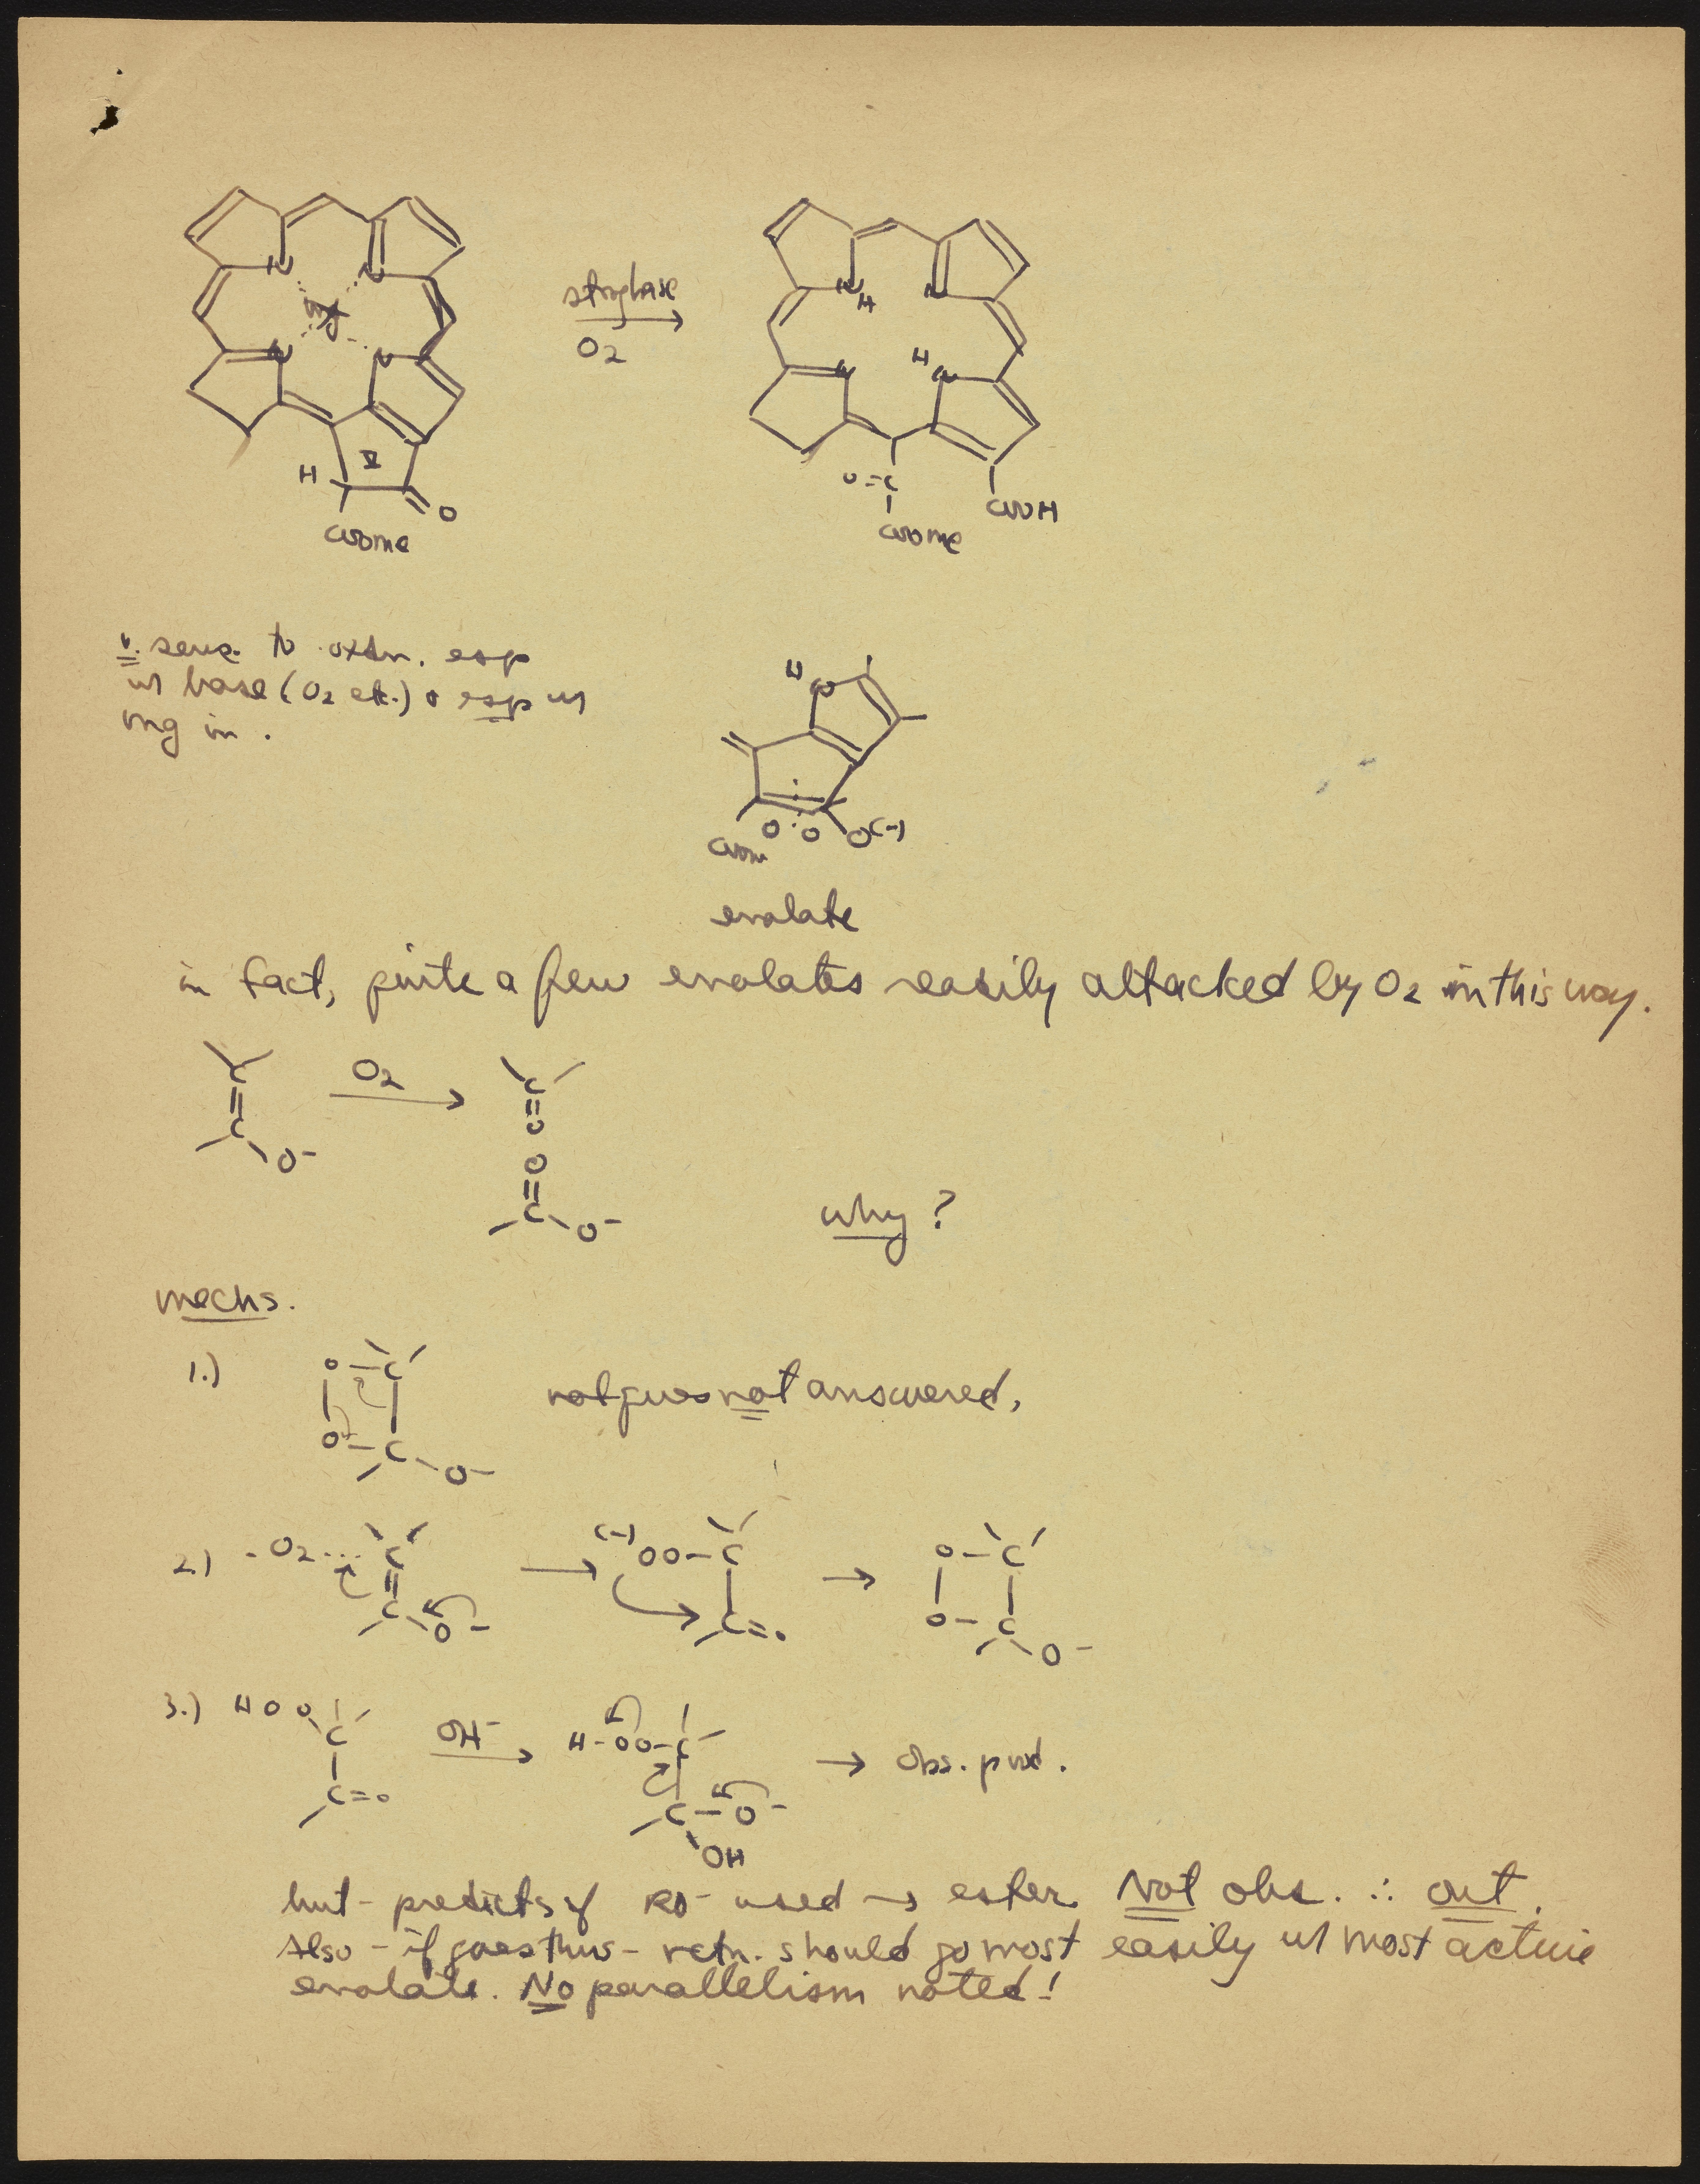 N N
Mg
N N
H V
O
COOMe
strong base
O2
N N
H
H
N N
O=C
COOMe
COOH
v. sens. to oxdn. esp
w base (O2 etc.) & esp w
Mg in.
H N
O O O(-)
COOMe
enolate
in fact, quite a few enolates easily attacked by O2 in this way.
C
C
O-
O2
C
O
O
C
O-
why?
mechs.
1.)
O - C
O - C - O-
not answered,
2.) O2
C
C
O-
(-)OO-C
C=O
O-C
O-C
O-
3.) HOO
C
C=O
OH-
H-OO-C
C-O-
OH
→ obs. prod.
but - predicts if RO- used → ester. Not obs. ∴ out.
Also - if goes thus - rctn. should go most easily w most active
enolate. No parallelism noted!